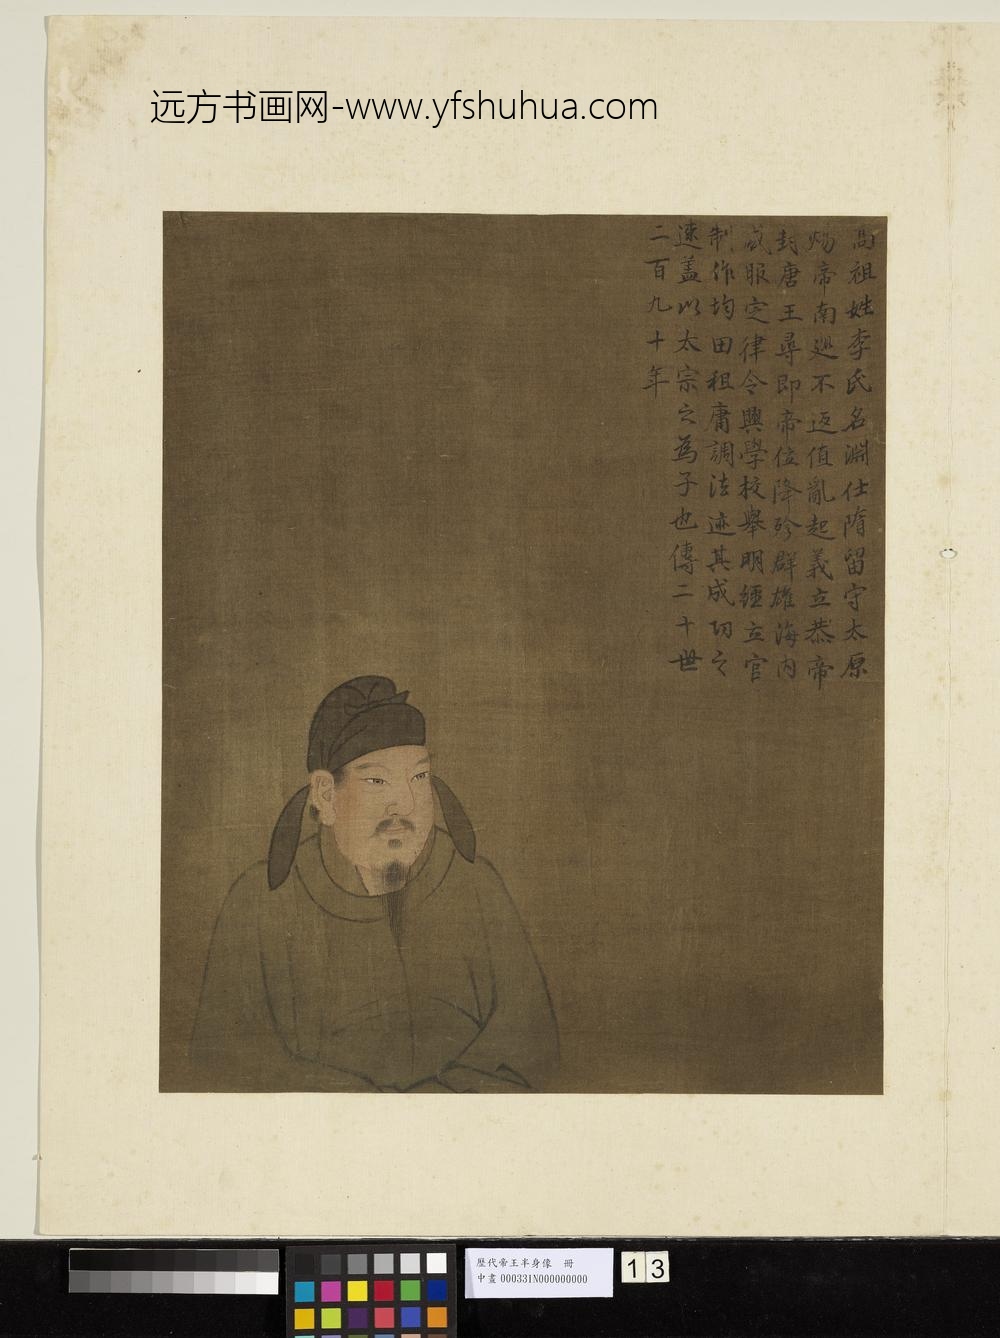 远方书画网-www.yfshuhua.com
高祖姓李氏名淵仕隋留守太原
煬帝南廵不返值亂起義立恭帝
封唐王尋即帝位降殄群雄海内
咸服定律令興學校舉明經立官
制作均田租庸調法迹其成功之
速盖以太宗之為子也傳二十世
二百九十年
歷代帝王半身像 冊
中畫000331N000000000
13